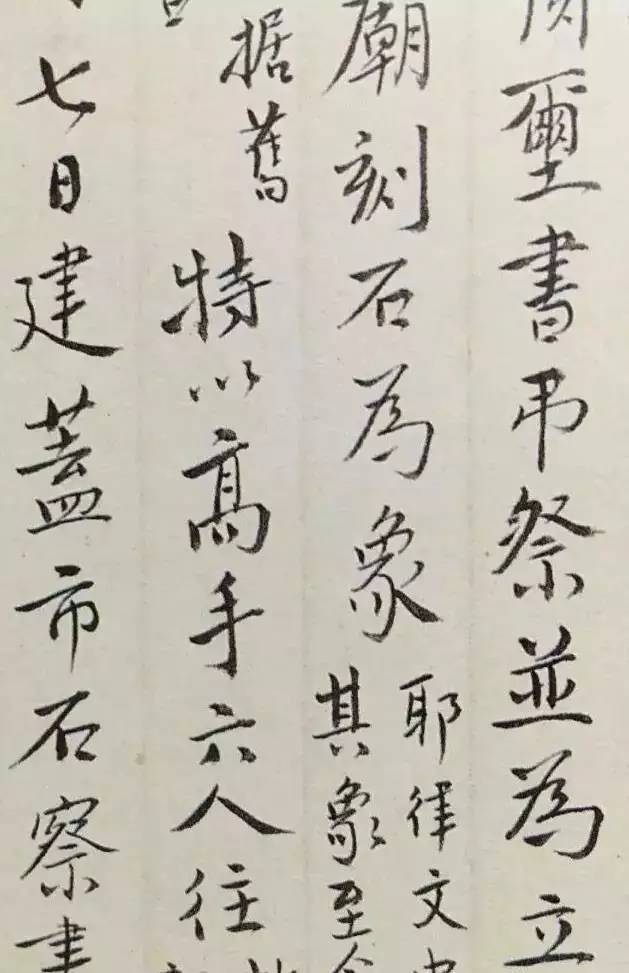 壐書吊祭並為立
廟刻石為象
耶律文
其象至
据舊
特以高手六人往
七日建蓋市石察